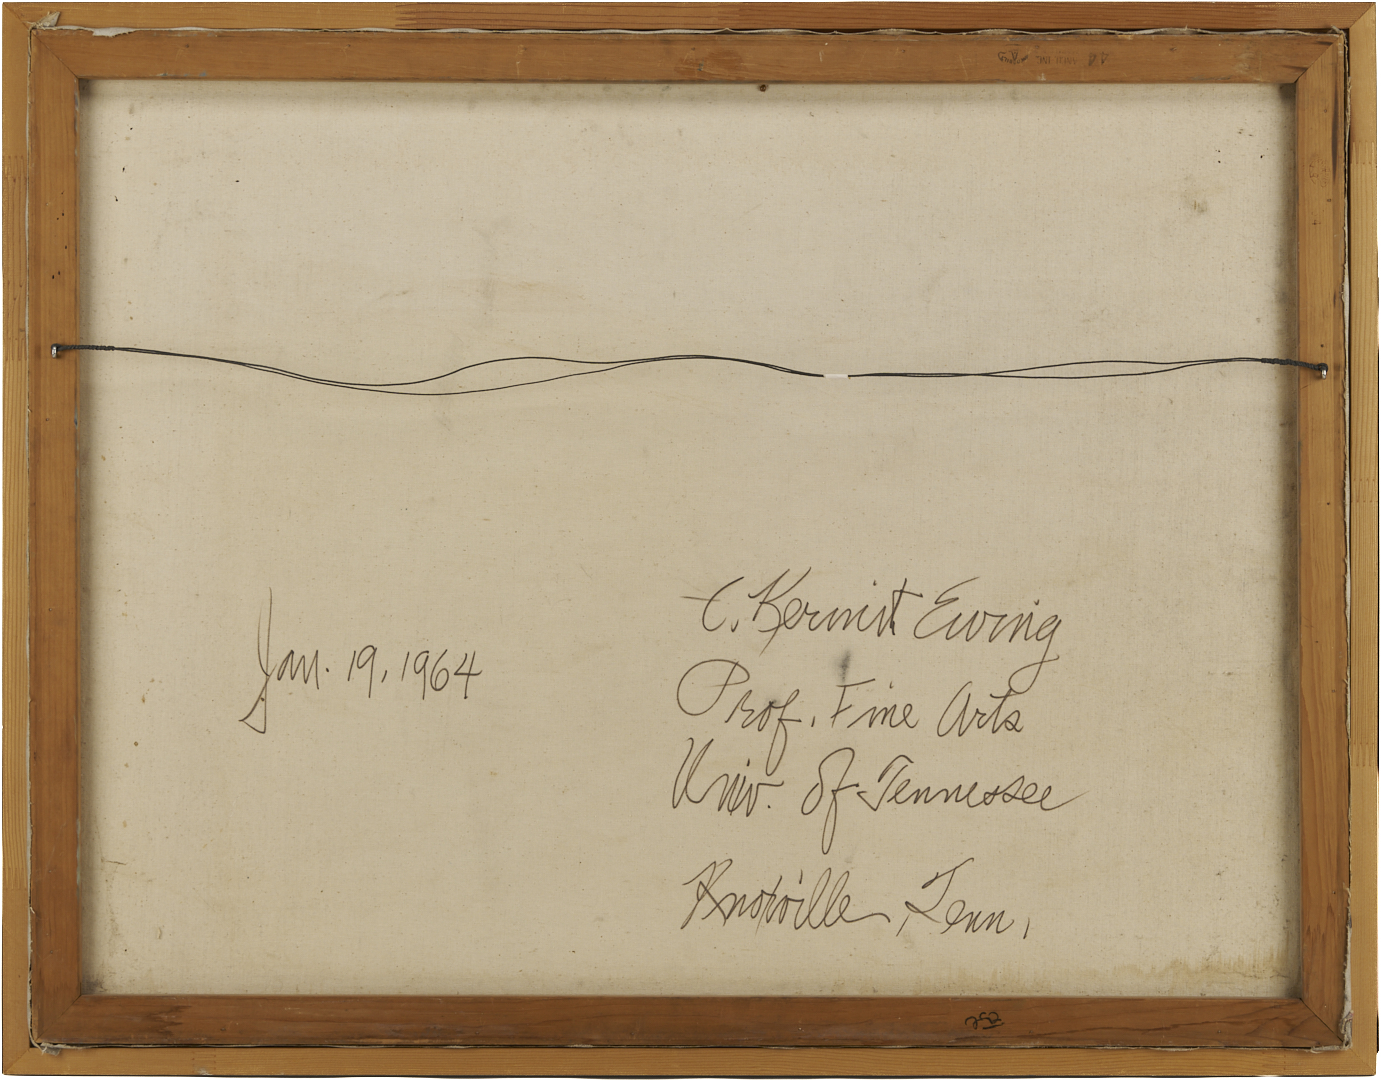 Jan. 19, 1964
C. Kermit Ewing
Prof. Fine Arts
Univ. of Tennessee
Knoxville, Tenn.